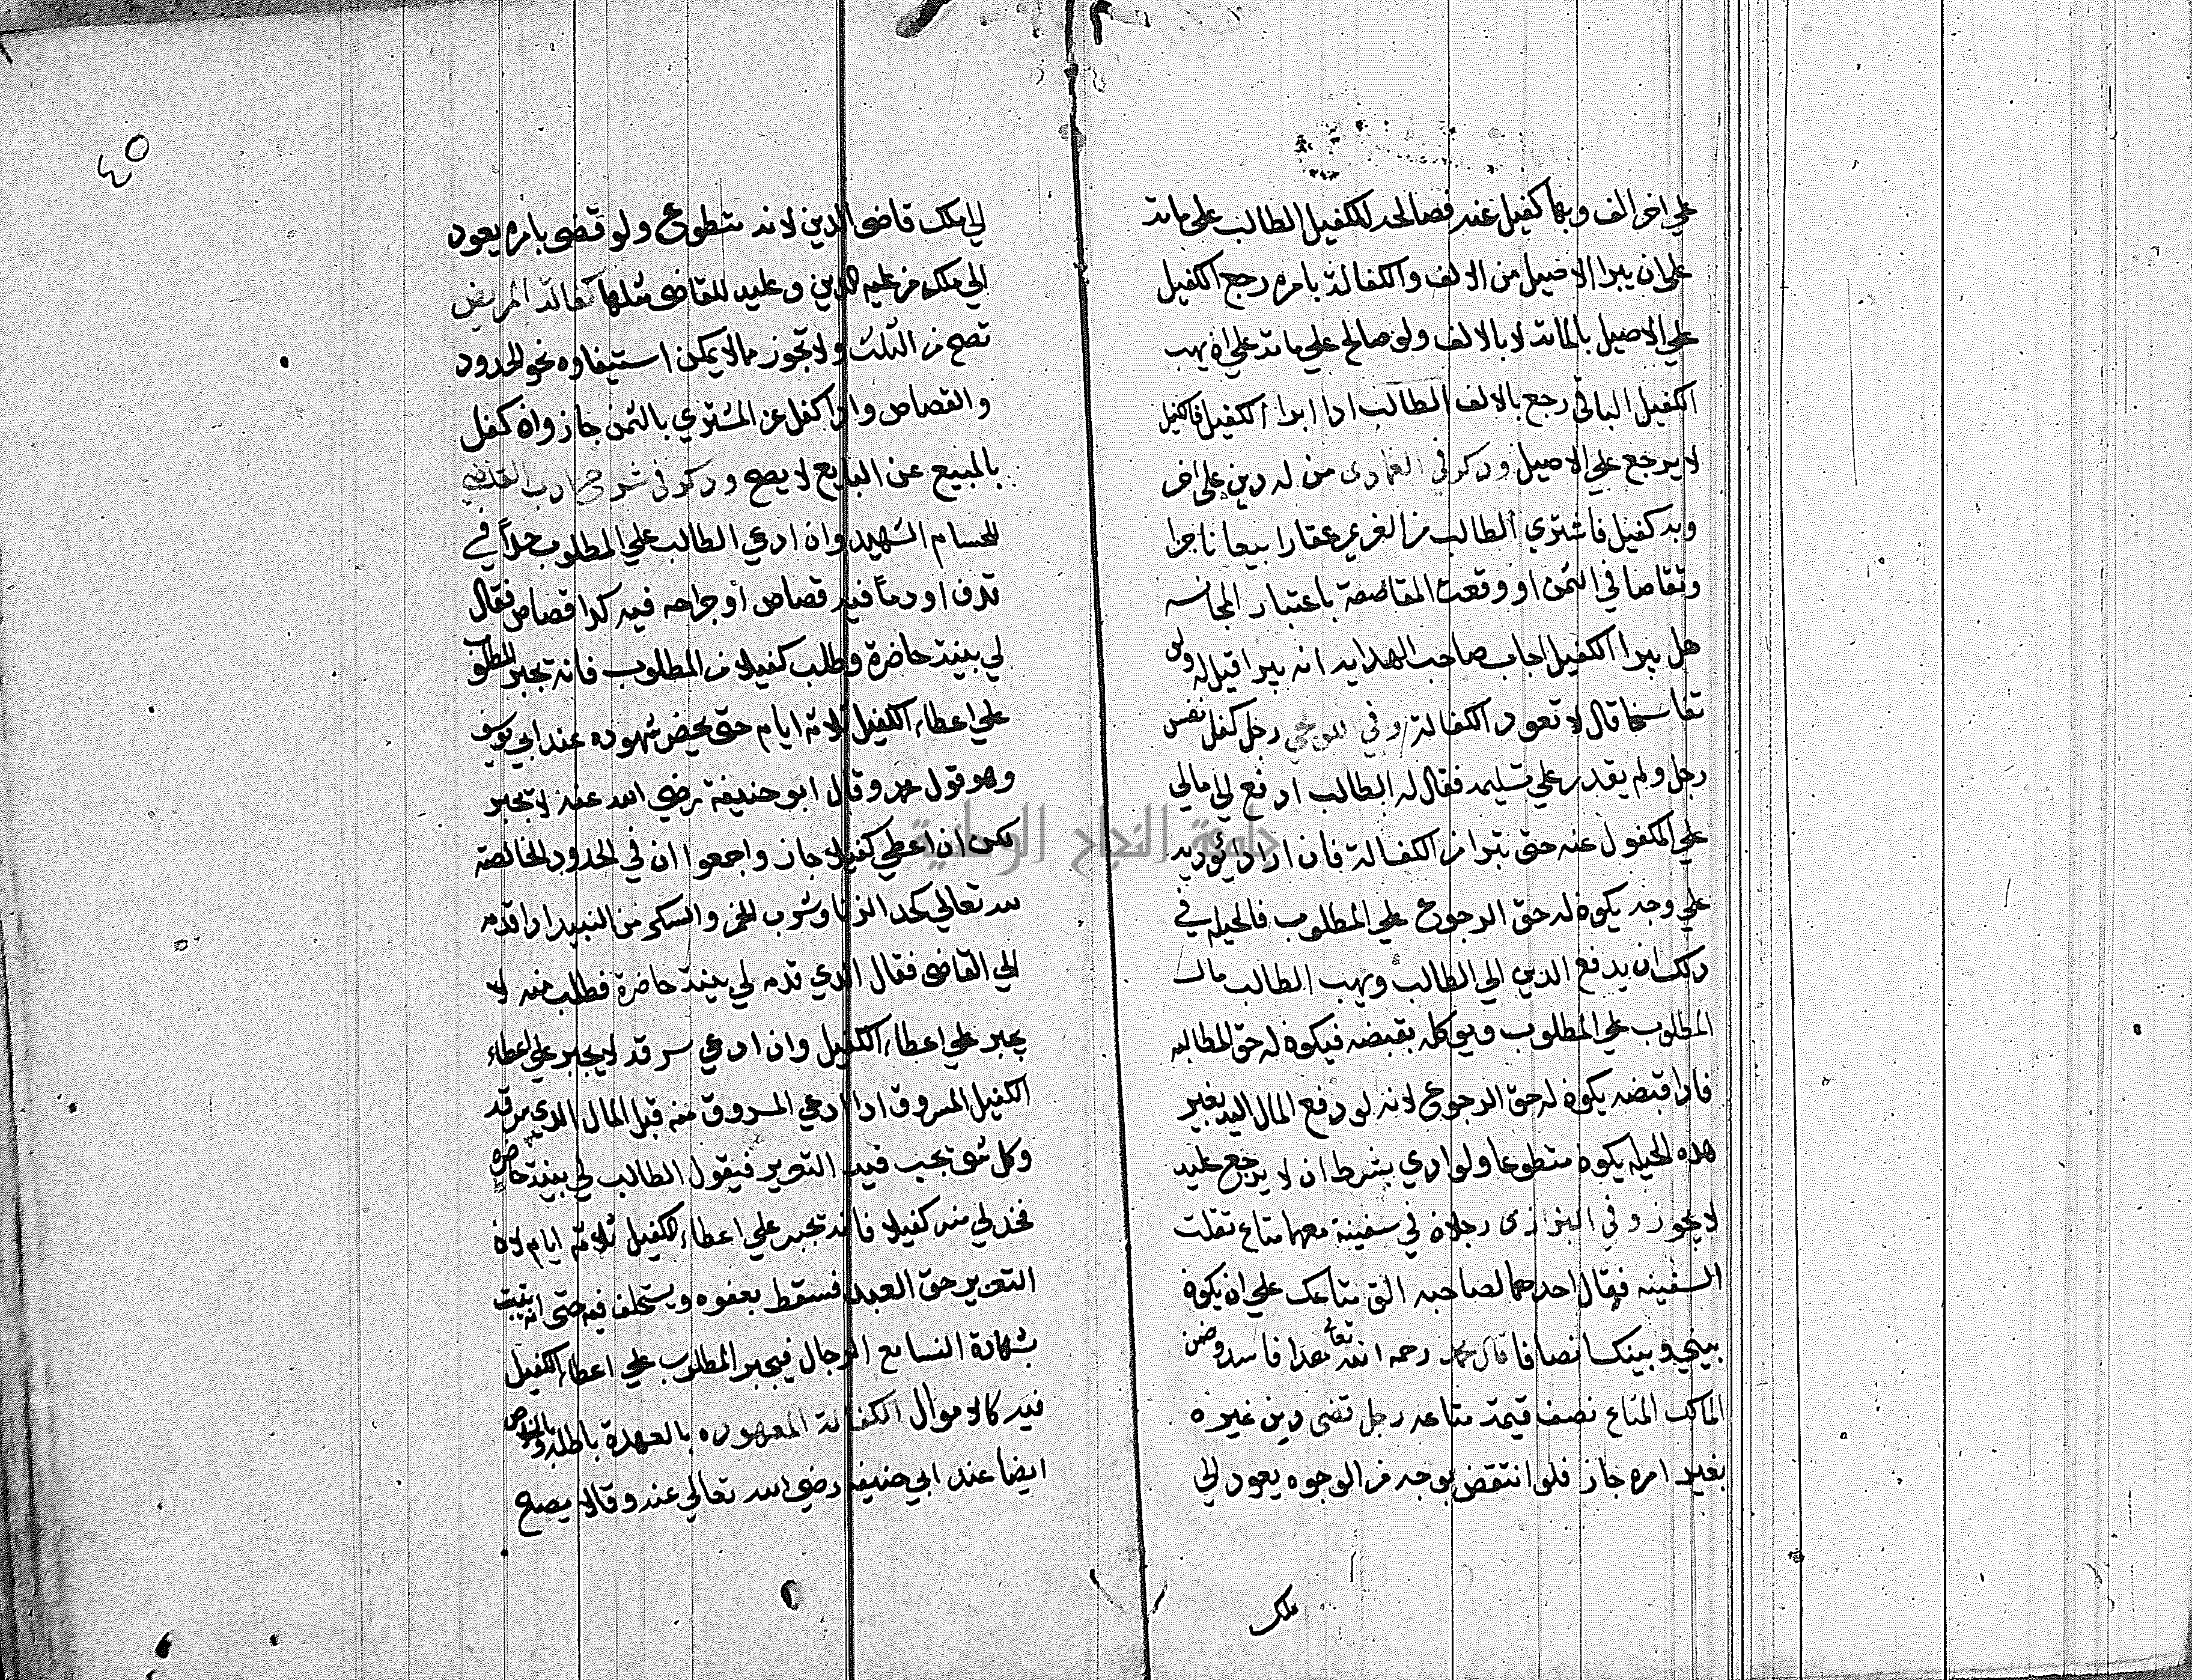 علي اخر الف وبها كفيل عنه فصالحه الكفيل الطالب علي مائة
علي ان يبرا الاصيل من الالف والكفالة بامره رجع الكفيل
علي الاصيل بالمائة لا بالالف ولو صالح علي مائة علي ان يهب
الكفيل الباقي رجع بالالف الطالب ادا ابرا الكفيل فالكفيل
لا يرجع علي الاصيل ودكر في العمادى من له دين علي اخر
وبه كفيل فاشتري الطالب من الغريم عقارا بيعا ناجزا
وتقاصا في الثمن او وقعت المقاصصة باعتبار المجانسه
هل يبرا الكفيل اجاب صاحب الهدايه انه يبرا قيل له ولو
تفاسخا قال لا تعود الكفالة وفي رجل كفل نفس
رجل ولم يقدر علي تسليمه فقال له الطالب ادفع لي مالي
علي المكفول عنه حتي تبرا من الكفالة فان اراد يؤديه
علي وجه يكون له حق الرجوع علي المطلوب فالحيله في
دلك ان يدفع الدين الي الطالب ويهب الطالب ماله
المطلوب علي المطلوب ويوكله بقبضه فيكون له حق المطالبه
فادا قبضه يكون له حق الرجوع لانه لو دفع المال اليه بغير
هده الحيله يكون متطوعا ولو ادي بشرط ان لا يرجع عليه
لا يجوز وفي البزازى رجلان في سفينة معهما متاع ثقلت
السفينه فقال احدهما لصاحبه الق متاعك علي ان يكون
بيني وبينك انصافا قال محمد رحمه الله تعالي هدا فاسد وضمن
المالك المتاع نصف قيمة متاعه رجل قضى دين غيره
بغير امره جاز فلو انتقض بوجه من الوجوه يعود الي
ملك
٤٥
الي ملك قاضى الدين لانه متطوع ولو قضى بامره يعود
الي ملك من عليه الدين وعليه للقاضى مثلها كفالة المريض
تصح من الثلث ولا تجوز مالا يمكن استيفاوه نحو الحدود
والقصاص وادا كفل عن المشتري بالثمن جاز وان كفل
بالمبيع عن البايع لا يصح ودكر في شرح ادب القاضي
للحسام الشهيد وان ادعي الطالب علي المطلوب حدا في
قدف او دما فيه قصاص أو جراحه فيه كدا قصاص فقال
لي بينة حاضرة وطلب كفيلا من المطلوب فانه تجبر المطلوب
علي اعطاء الكفيل ثلاثة ايام حتي يحضر شهوده عند ابي يوسف
وهو قول محمد وقال ابو حنيفة رضي الله عنه لا تجبر
لكن ان اعطي كفيلا جاز واجمعوا ان في الحدود الخالصة
لله تعالي كحد الزنا وشرب الخمر والسكر من النبيد ادا قدمه
الي القاضى فقال الدي قدمه لي بينة حاضرة فطلب منه لا
يجبر علي اعطاء الكفيل وان ادعي سرقة لا يجبر علي اعطاء
الكفيل المسروق ادا ادعي المسروق منه قبل المال الدي سرقه
وكل شى تجب فيه التعزير فيقول الطالب لي بينة حاضره
فخد لي منه كفيلا فانه تجبر علي اعطاء الكفيل ثلاثة ايام لان
التعزير حق العبد فسقط بعفوه ويستحلف فيه حتي انه يثبت
بشهادة النسا مع الرجال فيجبر المطلوب علي اعطاء الكفيل
فيه كالاموال الكفالة المعهوده بالعهدة باطلة وبالخلاص
ايضا عند ابي حنيفه رضي الله تعالي عنه وقالا يصح
جامعة النجاح الوطنية